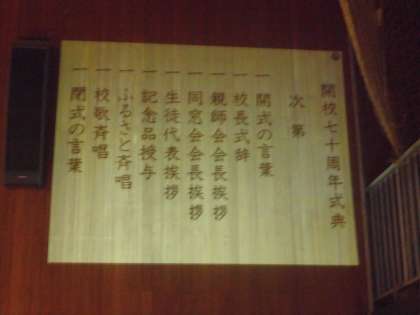 開校七十周年式典
次第
一 開式の言葉
一 校長式辞
一 親師会会長挨拶
一 同窓会会長挨拶
一 生徒代表挨拶
一 記念品授与
一 ふるさと斉唱
一 校歌斉唱
一 閉式の言葉